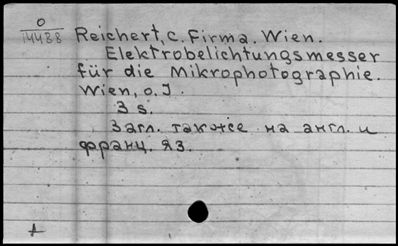 0
14488
Reichert, C. Firma. Wien.
Elektrobelichtungsmesser
für die Mikrophotographie.
Wien, o. J.
3 s.
Загл. также на англ. и
франц. яз.